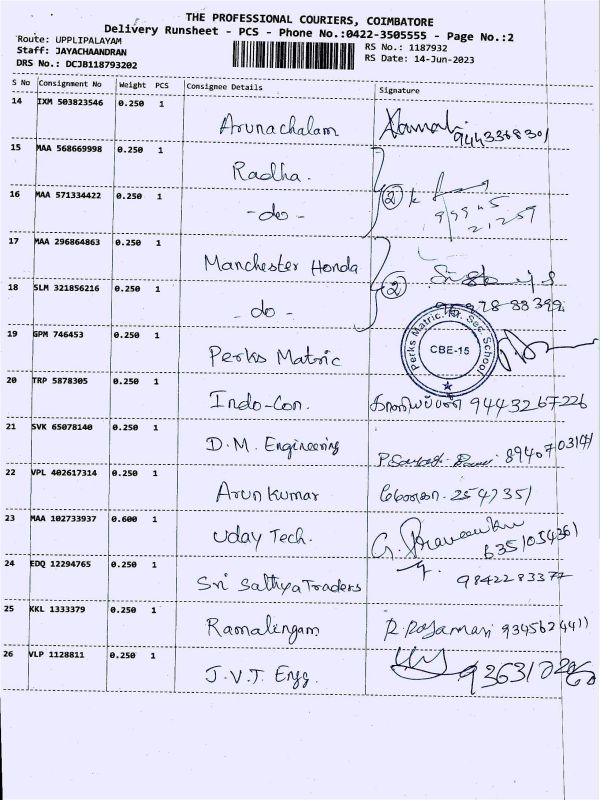 THE PROFESSIONAL COURIERS, COIMBATORE
Delivery Runsheet - PCS - Phone No.:0422-3505555 - Page No.:2
Route: UPPLIPALAYAM
RS No.: 1187932
Staff: JAYACHAANDRAN
RS Date: 14-Jun-2023
DRS No.: DCJB118793202
S No Consignment No Weight PCS Consignee Details Signature
14 IXM 503823546 0.250 1
Arunachalam 9443368301
15 MAA 568669998 0.250 1
Radha.
16 MAA 571334422 0.250 1
- do - ②
17 MAA 296864863 0.250 1
Manchester Honda
18 SLM 321856216 0.250 1
- do - ②
19 GPM 746453 0.250 1
Perks Matric
Perks Matric. Hr. Sec School
CBE-15
20 TRP 5878305 0.250 1
Indo-Con. 9443267226
21 SVK 65078140 0.250 1
D.M. Engineering
22 VPL 402617314 0.250 1
Arun Kumar 2547351
23 MAA 102733937 0.600 1
Uday Tech. 6351054361
24 EDQ 12294765 0.250 1
Sri Sathya Traders 9842283377
25 KKL 1333379 0.250 1
Ramalingam 9345624411
26 VLP 1128811 0.250 1
J.V.T. Engg.